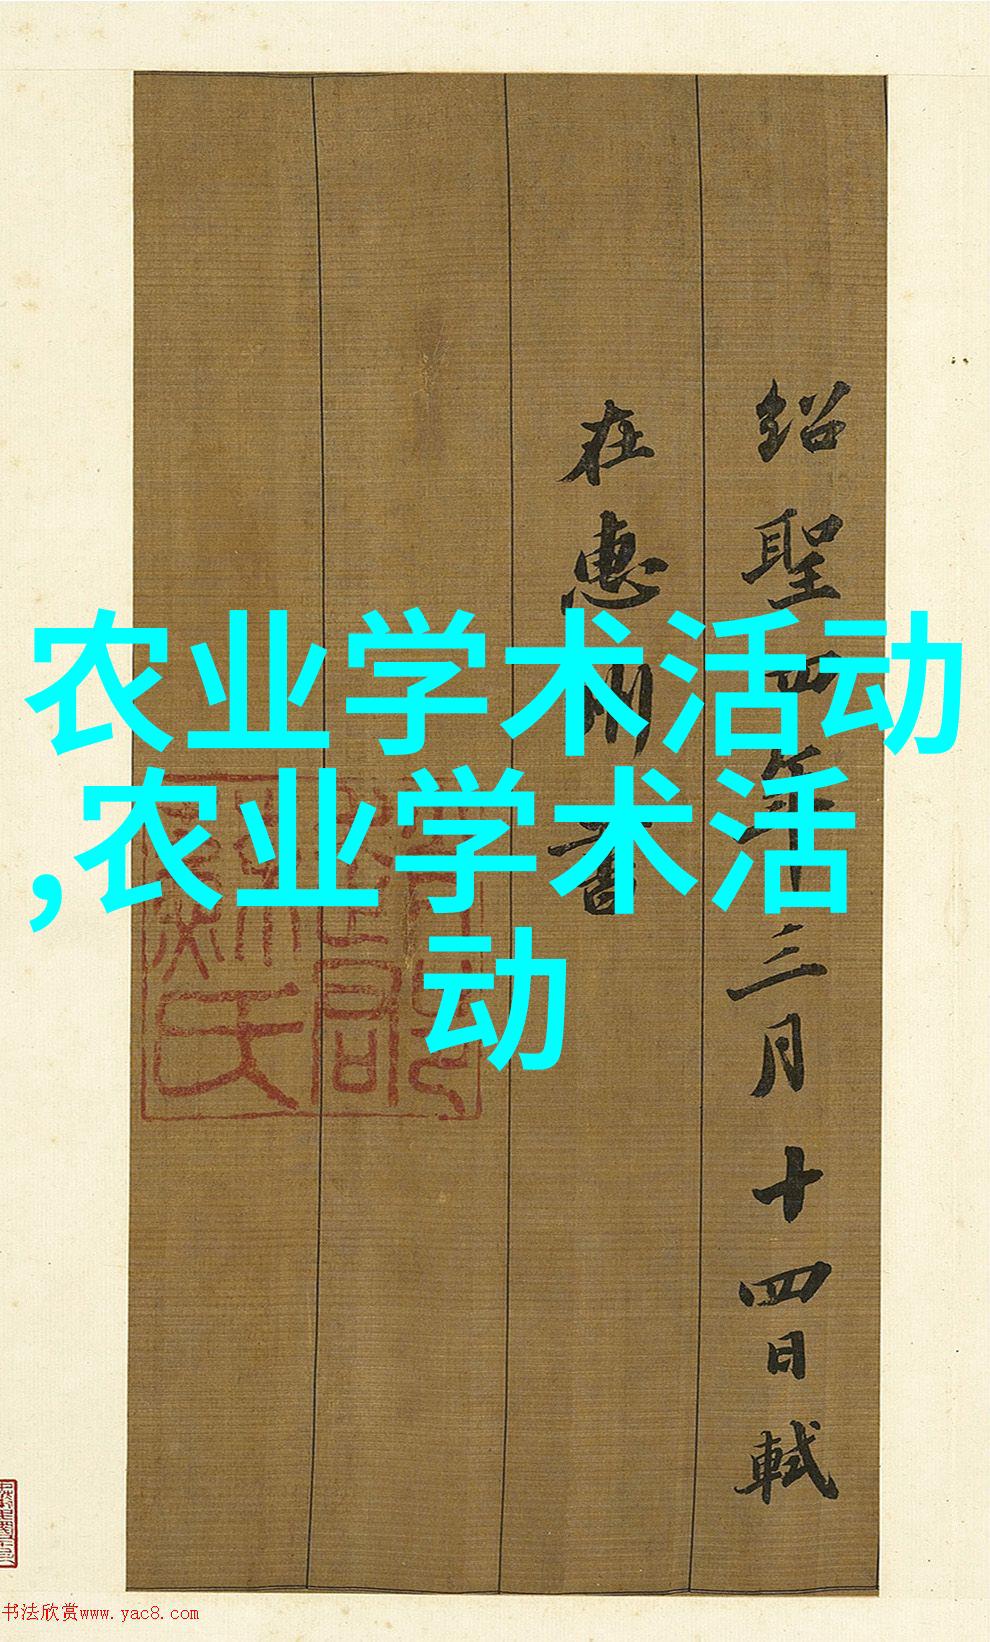 农业学术活动
,农业学术活
动
绍聖四年三月十四日軾
在惠州書
书法欣赏www.yac8.com